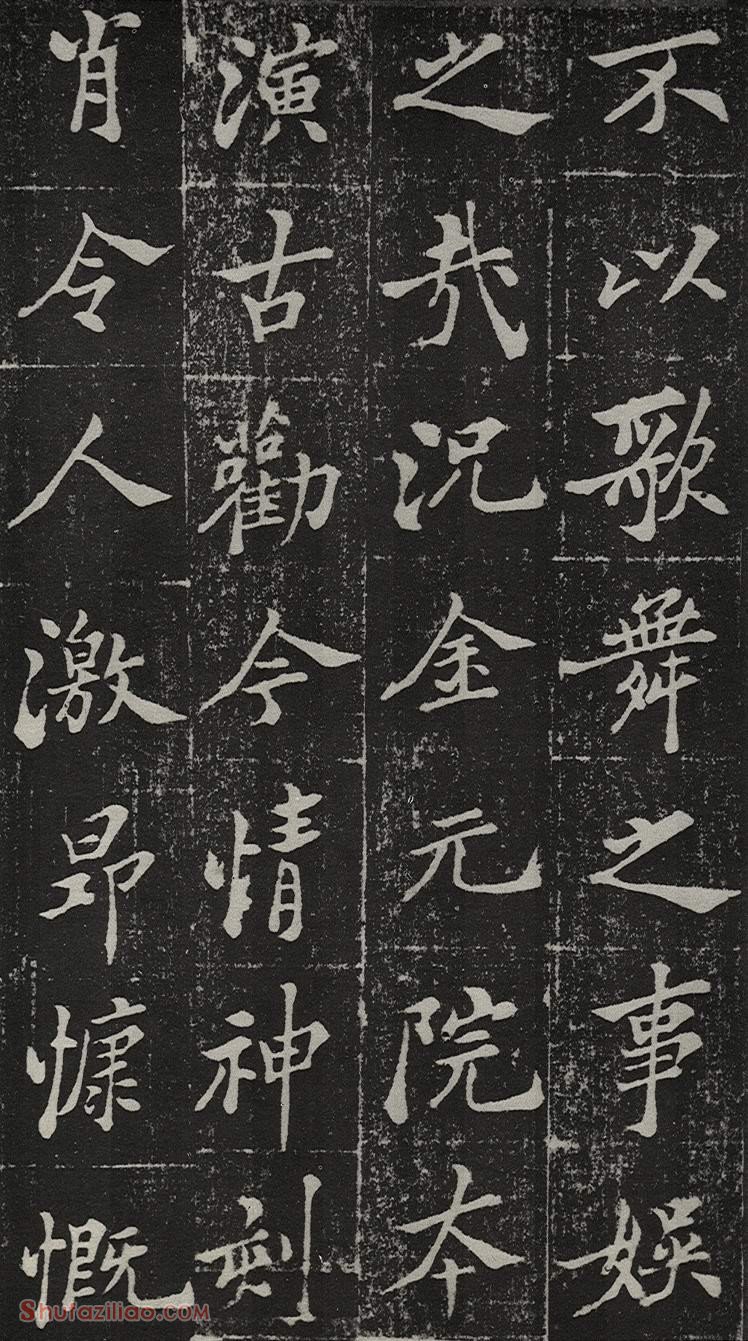 不以歌舞之事娱
之哉况金元院本
演古勸今情神刻
肖令人激昂慷慨
Shufaziliao.com